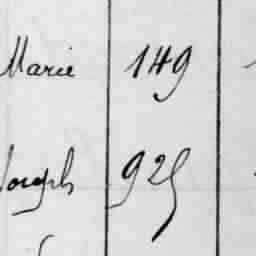 Marie 149
Joseph 925